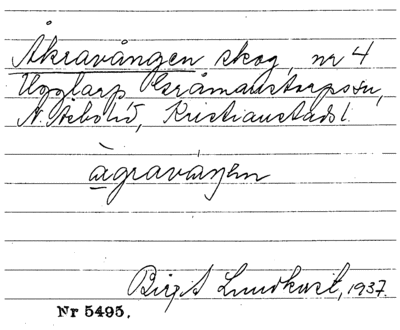 Åkravången skog, nr 4
Ugglarp Gråmanstorps sn,
N. Åsbo hd, Kristianstads l.
àgraváŋen
Birgit Lundkvist, 1937.
Nr 5495.